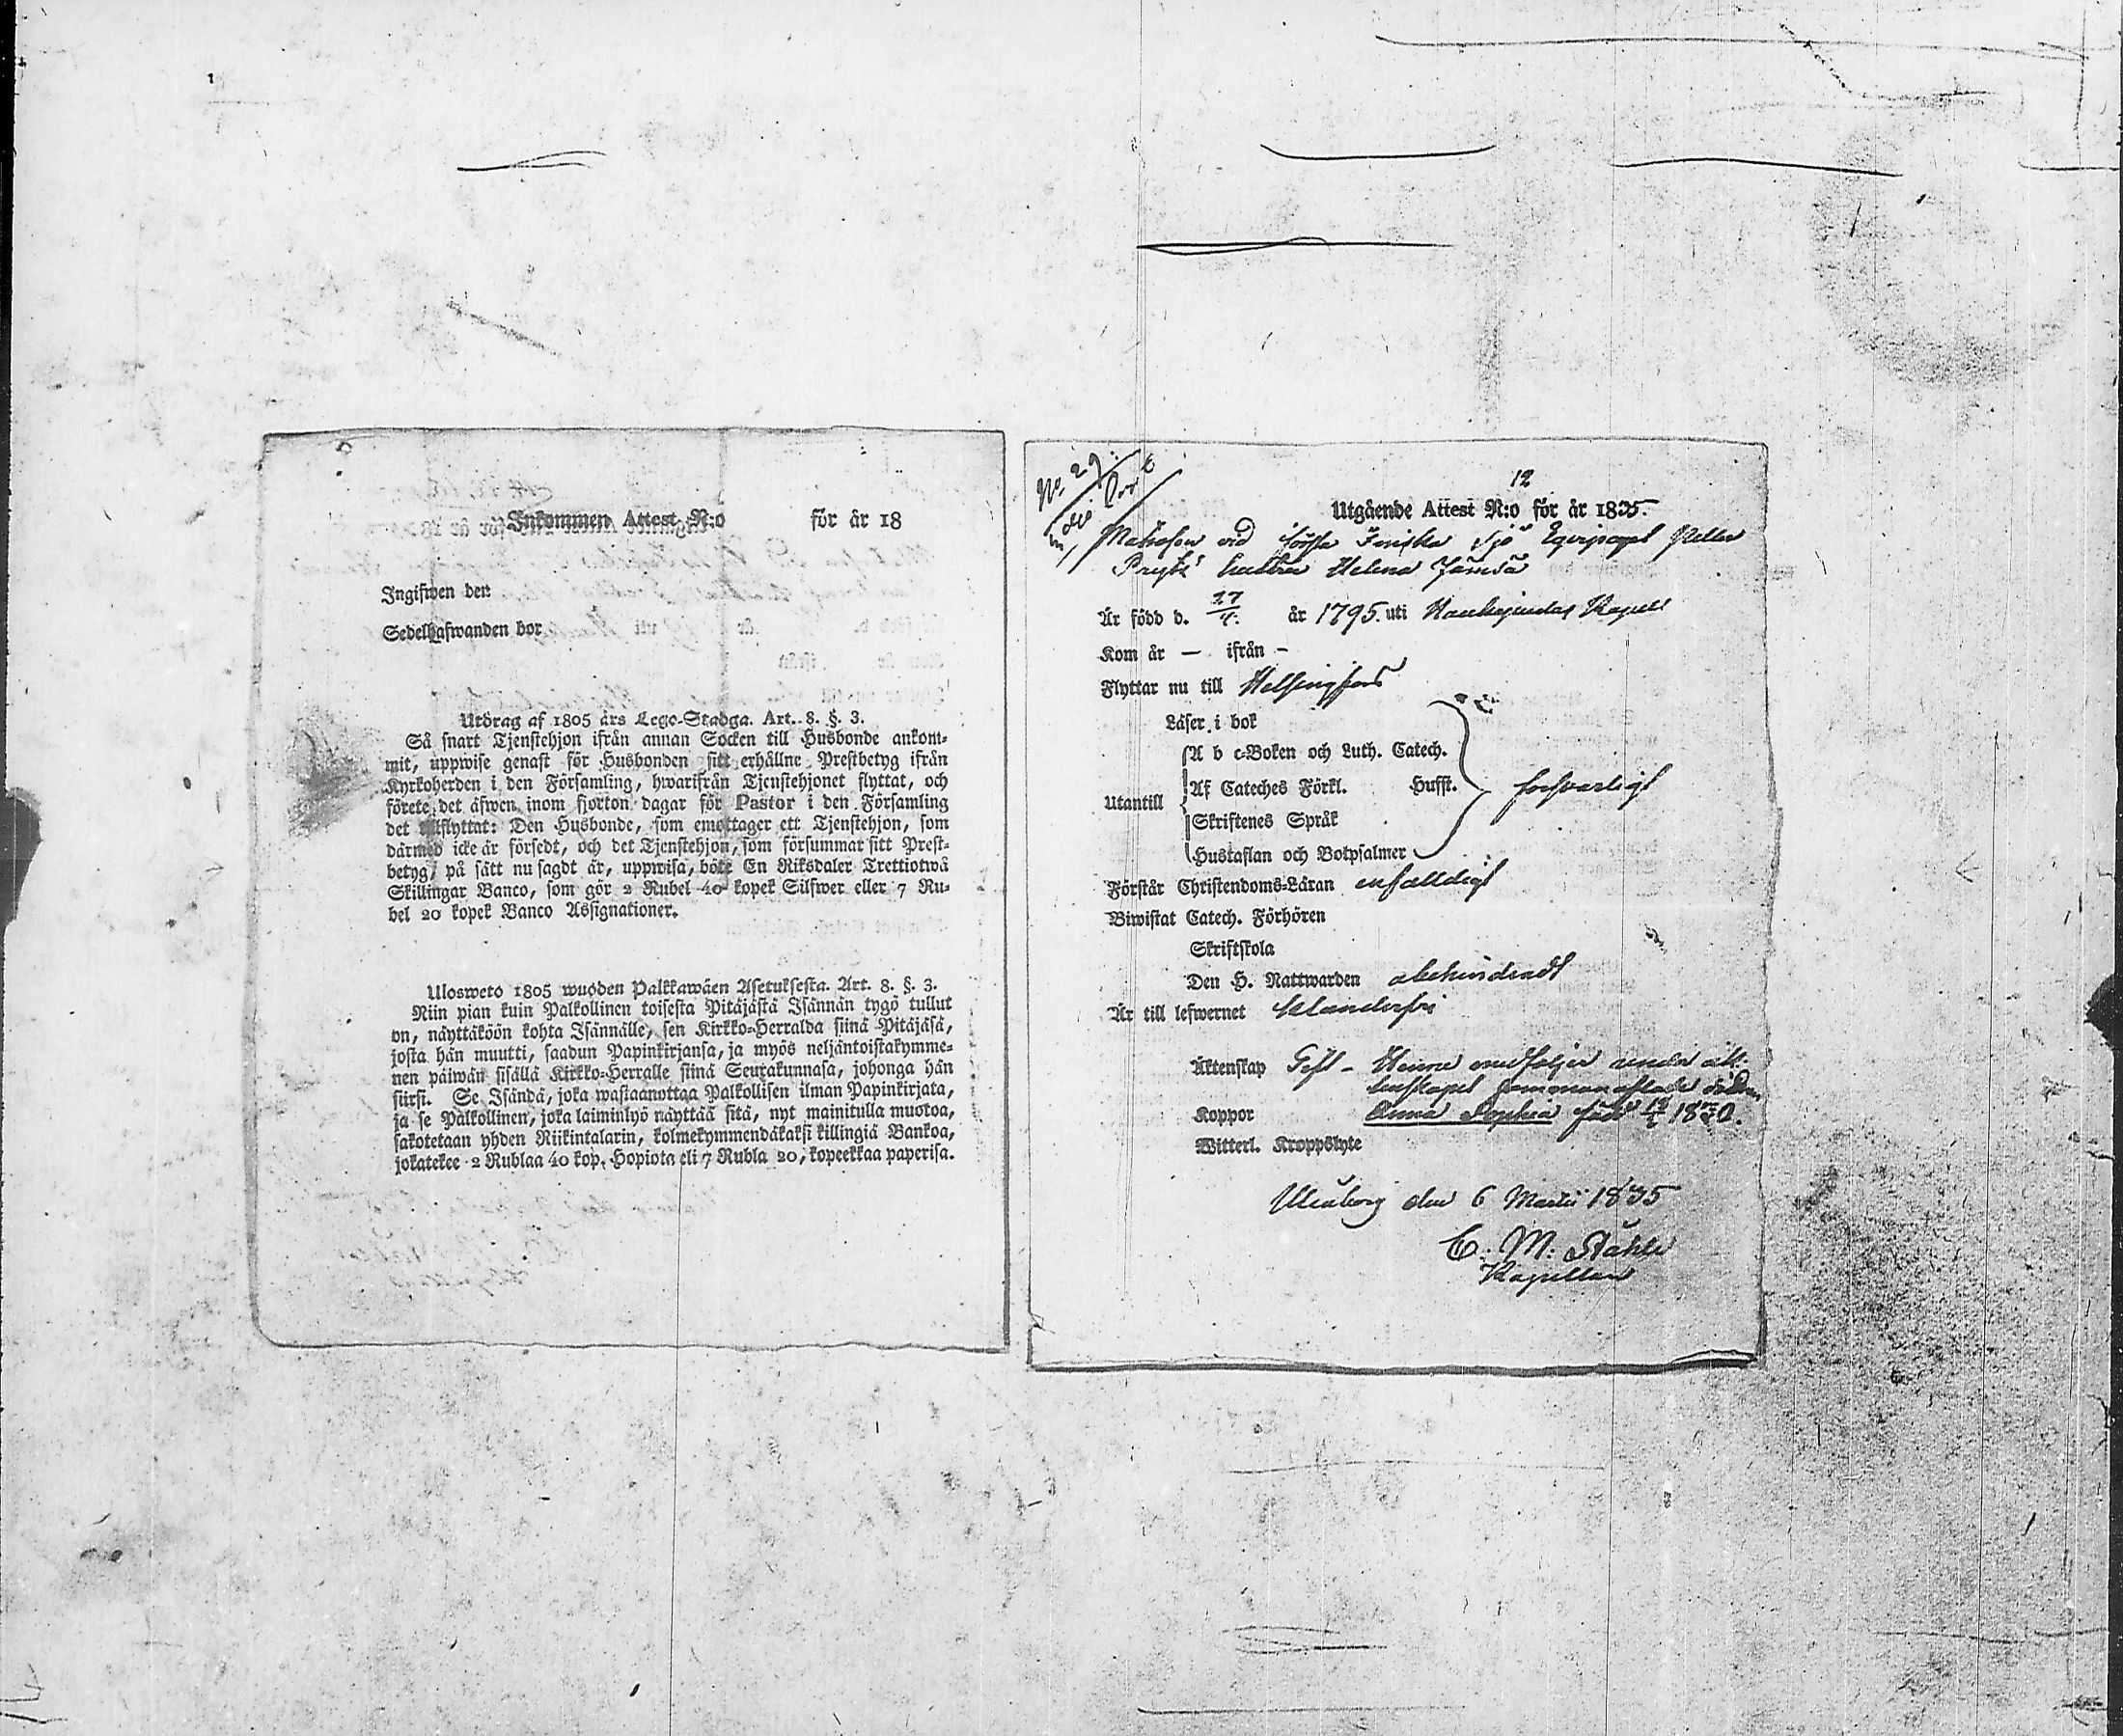 Inkommen Attest N:o för år 18
Ingifwen den
Sedelhafwanden bor
Utdrag af 1805 års Lego-Stadga. Art. 8. §. 3.
Så snart Tjenstehjon ifrån annan Socken till Husbonde ankom-
mit, uppwise genast för Husbonden sitt erhållne Prestbetyg ifrån
Kyrkoherden i den Församling, hwarifrån Tjenstehjonet flyttat, och
förete det äfwen inom fjorton dagar för Pastor i den Församling
det tillflyttat: Den Husbonde, som emottager ett Tjenstehjon, som
därmed icke är försedt, och det Tjenstehjon, som försummar sitt Prest-
betyg, på sätt nu sagdt är, uppwisa, böte En Riksdaler Trettiotwå
Skillingar Banco, som gör 2 Rubel 40 kopek Silfwer eller 7 Ru-
bel 20 kopek Banco Assignationer.
Ulosweto 1805 wuoden Palkkawäen Asetuksesta. Art. 8. §. 3.
Niin pian kuin Palkollinen toisesta Pitäjästä Isännän tygö tullut
on, näyttäköön kohta Isännälle, sen Kirkko-Herralda siinä Pitäjäsä,
josta hän muutti, saadun Papinkirjansa, ja myös neljäntoistakymme-
nen päiwän sisällä Kirkko-Herralle siinä Seurakunnasa, johonga hän
siirsi. Se Isändä, joka wastaanottaa Palkollisen ilman Papinkirjata,
ja se Palkollinen, joka laiminlyö näyttää sitä, nyt mainitulla muotoa,
sakotetaan yhden Riikintalarin, kolmekymmendäkaksi killingiä Bankoa,
jokatekee 2 Rublaa 40 kop. Hopiota eli 7 Rubla 20, kopeekkaa paperisa.
No 29:
12
Utgående Attest N:o för år 1835.
Matrosen vid första Finska Sjö Equipaget Petter
hustru Helena Jämsä
Är född d. 27/4. år 1795. uti Haukipudas Kapell
Kom år — ifrån -
Flyttar nu till Helsingfors
Läser i bok
A b c-Boken och Luth. Catech.
Utantill Af Cateches Förkl. Husst. försvarligt
Skriftenes Språk
Hustaflan och Botpsalmer
Förstår Christendoms-Läran enfalldigt
Biwistat Catech. Förhören
Skriftskola
Den H. Nattwarden obehindradt
Är till lefwernet klanderfri
Äktenskap Gift - Henne medföljer under äk-
tenskapet sammanaflade
Koppor Anna Sophia född 1830.
Witterl. Kroppslyte
Uleåborg den 6 Martii 1835
C: M: Ståhle
Kapellan